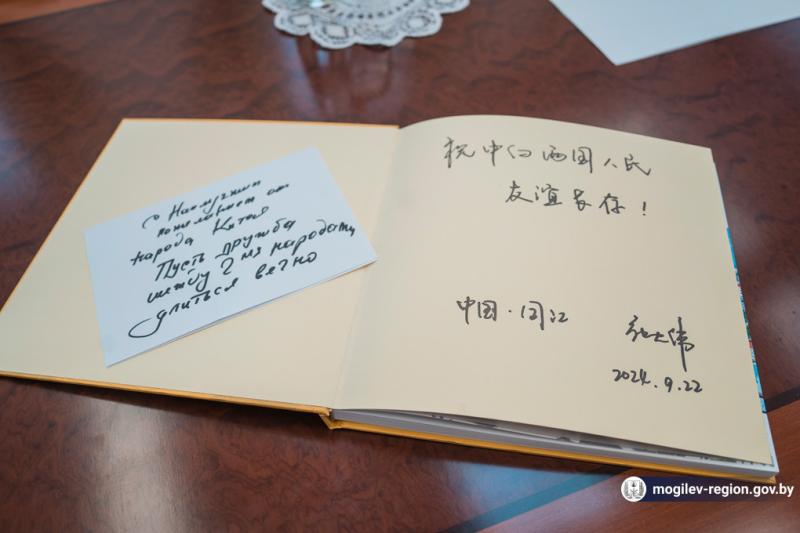 с Наилучшими
пожеланиями от
народа Китая
Пусть дружба
между 2 мя народами
длиться вечно
祝中白两国人民
友谊长存！
中国·
2024.9.22
mogilev-region.gov.by